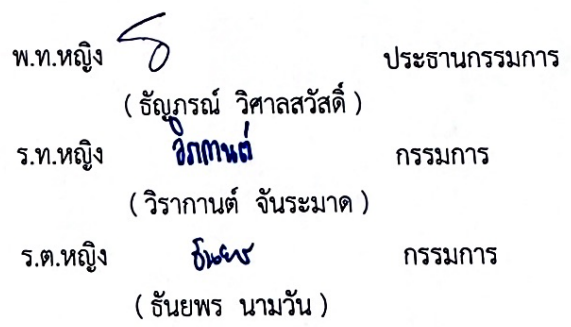 พ.ท.หญิง ประธานกรรมการ
( ธัญภรณ์ วิศาลสวัสดิ์ )
ร.ท.หญิง วิรากานต์ กรรมการ
( วิรากานต์ จันระมาด )
ร.ต.หญิง ธันยพร กรรมการ
( ธันยพร นามวัน )